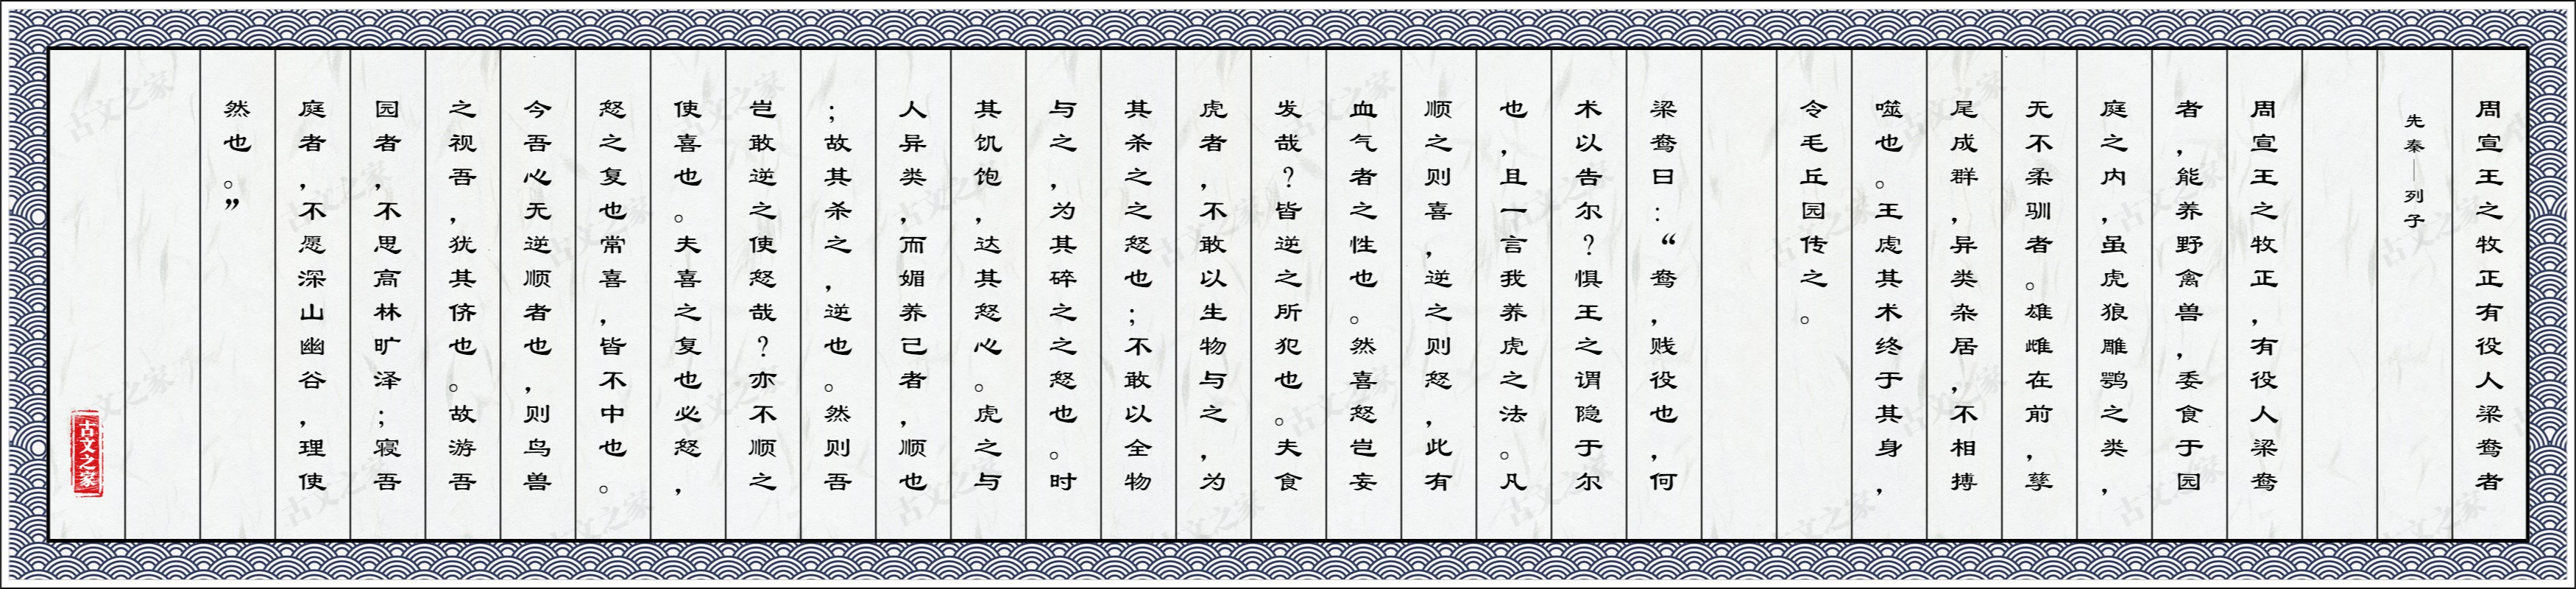 周宣王之牧正有役人梁鸯者
先秦—列子
周宣王之牧正，有役人梁鸯
者，能养野禽兽，委食于园
庭之内，虽虎狼雕鹗之类，
无不柔驯者。雄雌在前，孳
尾成群，异类杂居，不相搏
噬也。王虑其术终于其身，
令毛丘园传之。
梁鸯曰：“鸯，贱役也，何
术以告尔？惧王之谓隐于尔
也，且一言我养虎之法。凡
顺之则喜，逆之则怒，此有
血气者之性也。然喜怒岂妄
发哉？皆逆之所犯也。夫食
虎者，不敢以生物与之，为
其杀之之怒也；不敢以全物
与之，为其碎之之怒也。时
其饥饱，达其怒心。虎之与
人异类，而媚养己者，顺也
；故其杀之，逆也。然则吾
岂敢逆之使怒哉？亦不顺之
使喜也。夫喜之复也必怒，
怒之复也常喜，皆不中也。
今吾心无逆顺者也，则鸟兽
之视吾，犹其侪也。故游吾
园者，不思高林旷泽；寝吾
庭者，不愿深山幽谷，理使
然也。”
古文之家